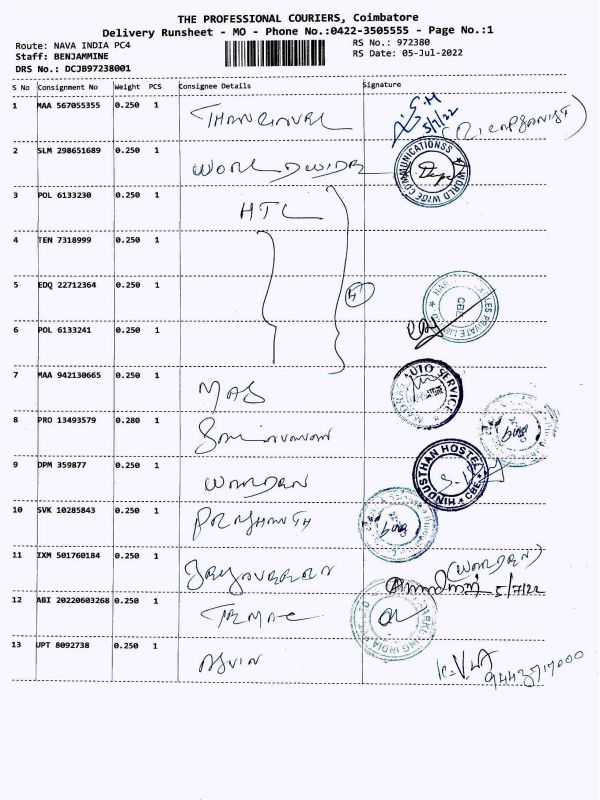 THE PROFESSIONAL COURIERS, Coimbatore
Delivery Runsheet - MO - Phone No.:0422-3505555 - Page No.:1
Route: NAVA INDIA PC4
RS No.: 972380
Staff: BENJAMMINE
RS Date: 05-Jul-2022
DRS No.: DCJB97238001
S No Consignment No Weight PCS Consignee Details Signature
1 MAA 567055355 0.250 1
5/7/22
2 SLM 298651689 0.250 1 WORLDWIDE
WORLD WIDE COMMUNICATIONSS
3 POL 6133230 0.250 1 HTL
4 TEN 7318999 0.250 1
5 EDQ 22712364 0.250 1
4
CBE
6 POL 6133241 0.250 1
7 MAA 942130665 0.250 1 MAS
AUTO SERVICE
8 PRO 13493579 0.280 1
9 DPM 359877 0.250 1 WARDEN
HINDUSTHAN HOSTEL
CBE
10 SVK 10285843 0.250 1 PRASHANTH
11 IXM 501760184 0.250 1
(WARDEN)
5/7/22
12 ABI 20220603268 0.250 1
13 JPT 8092738 0.250 1 ASVIN